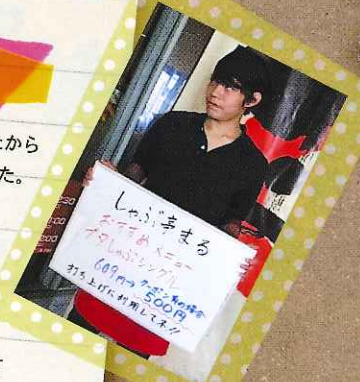 から
た。
しゃぶ亭まる
おすすめメニュー
ブタしゃぶシングル
609円→クーポン券の場合
500円
打ち上げに利用してネ!!